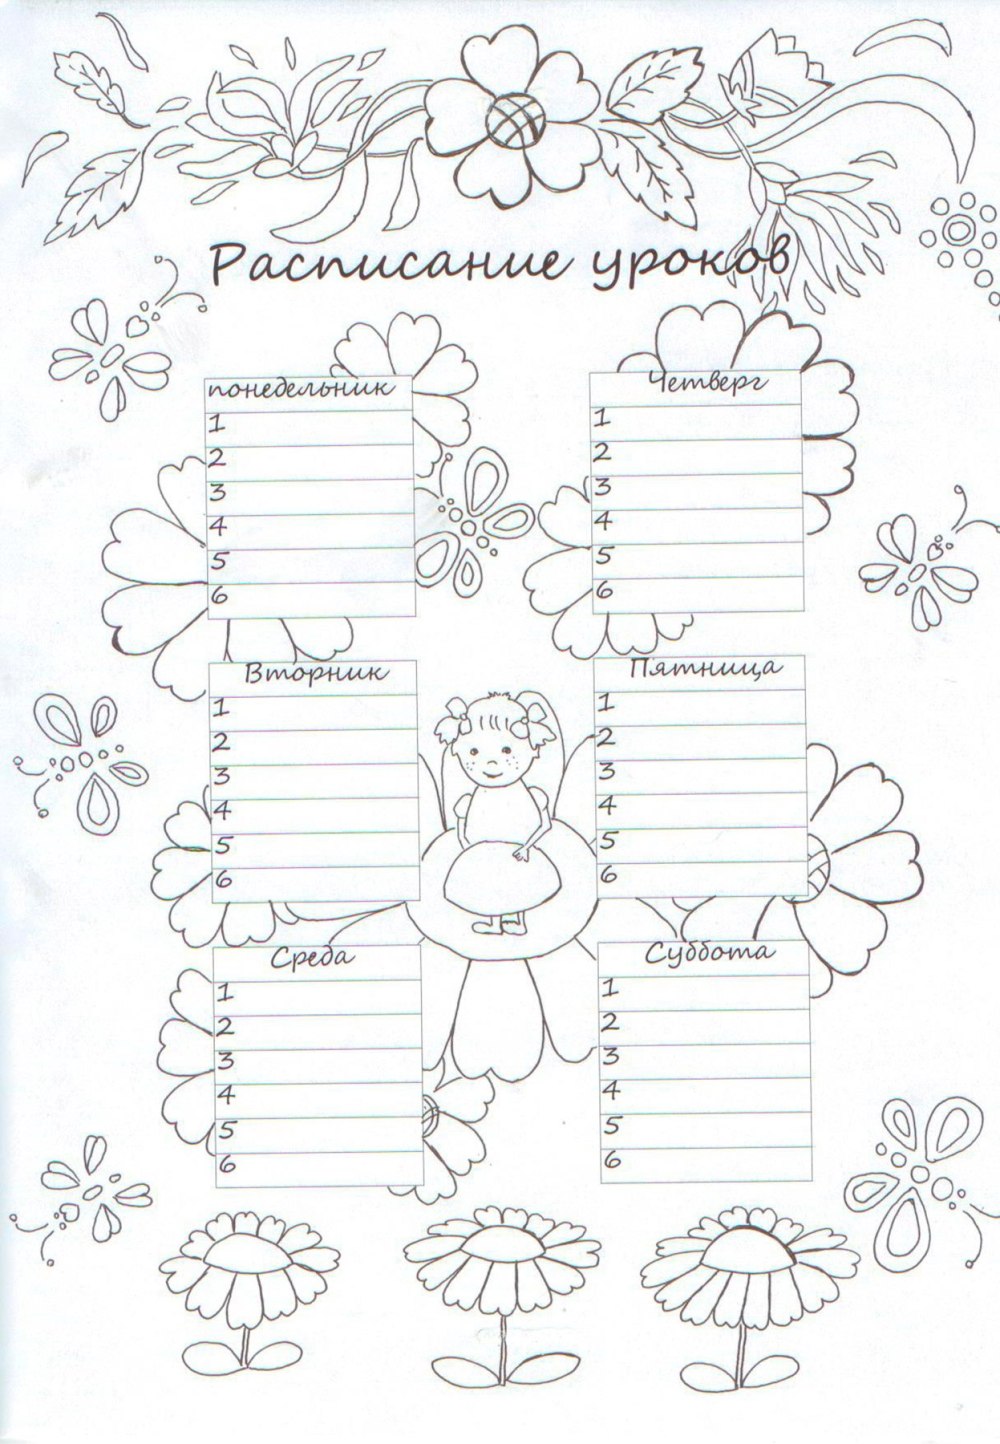 Расписание уроков
понедельник
1
2
3
4
5
6
Вторник
1
2
3
4
5
6
Среда
1
2
3
4
5
6
Четверг
1
2
3
4
5
6
Пятница
1
2
3
4
5
6
Суббота
1
2
3
4
5
6